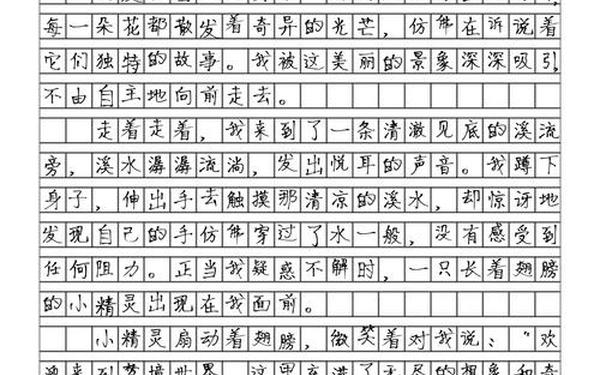 每一朵花都散发着奇异的光芒，仿佛在诉说着
它们独特的故事。我被这美丽的景象深深吸引，
不由自主地向前走去。
走着走着，我来到了一条清澈见底的溪流
旁，溪水潺潺流淌，发出悦耳的声音。我蹲下
身子，伸出手去触摸那清凉的溪水，却惊讶地
发现自己的手仿佛穿过了水一般，没有感受到
任何阻力。正当我疑惑不解时，一只长着翅膀
的小精灵出现在我面前。
小精灵扇动着翅膀，微笑着对我说：“欢
迎来到梦境世界，这里充满了无尽的想象和奇